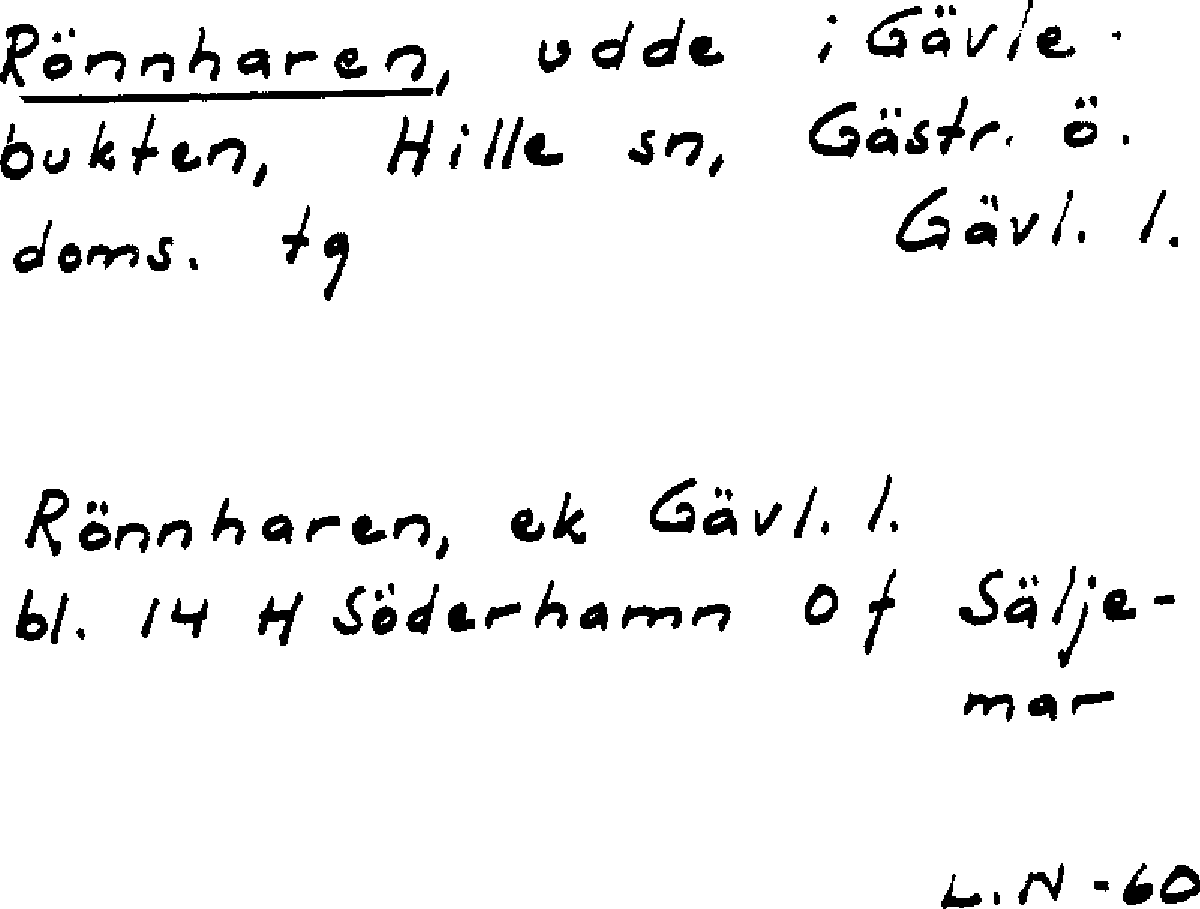 Rönnharen, udde i Gävle-
bukten, Hille sn, Gästr. ö.
doms. tg Gävl. l.
Rönnharen, ek Gävl. l.
bl. 14 H Söderhamn 0 f Sälje-
mar
L. N -60